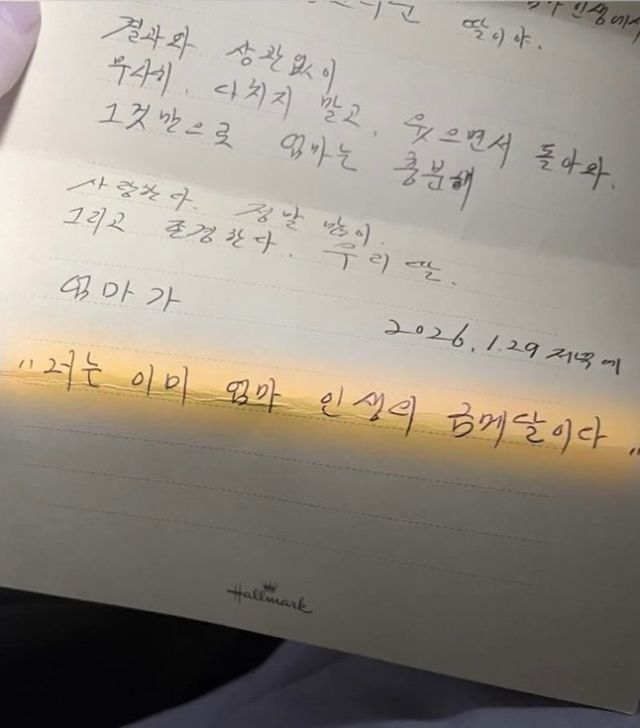 딸이야.
결과와 상관없이
무사히, 다치지 말고, 웃으면서 돌아와.
그것만으로 엄마는 충분해
사랑한다. 정말 많이.
그리고 존경한다. 우리 딸.
엄마가
2026. 1. 29 저녁에
"너는 이미 엄마 인생의 금메달이다"
Hallmark